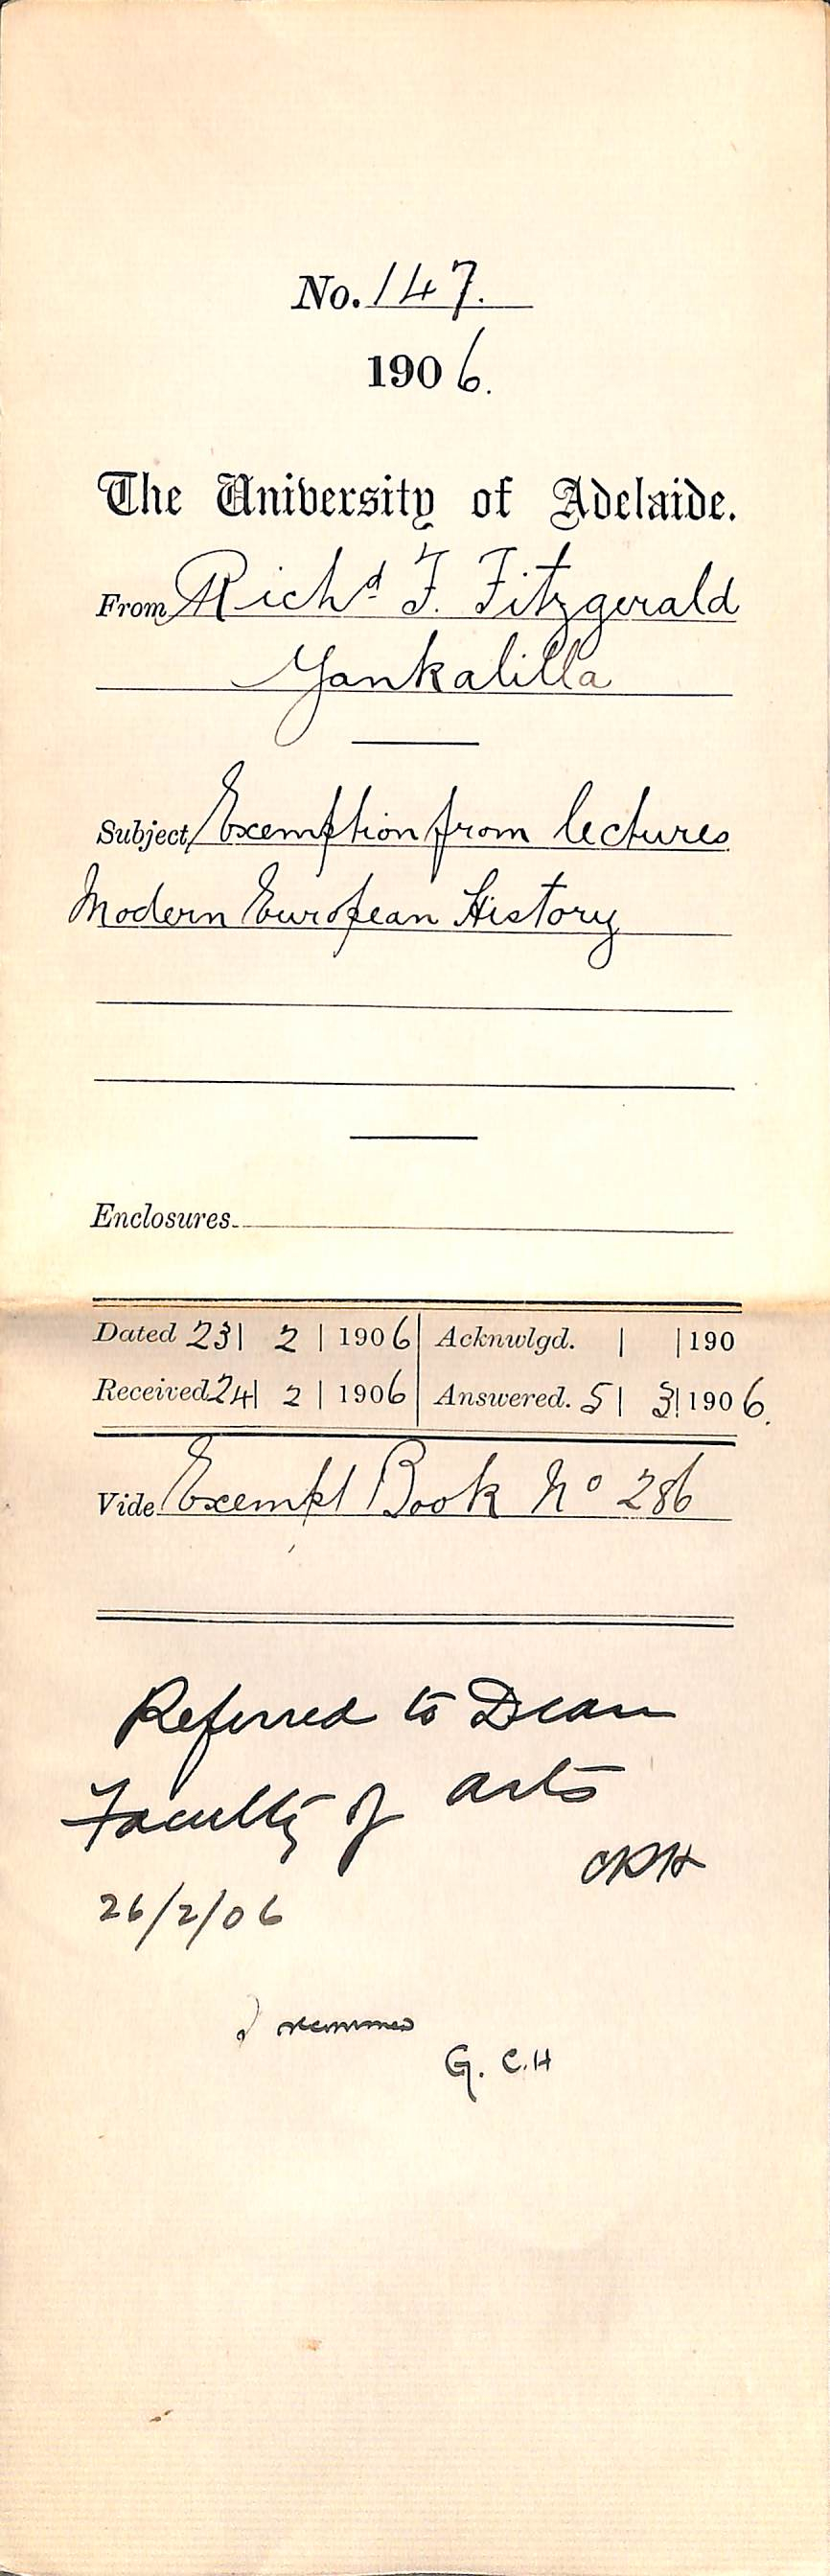 No. 147.
1906.
The University of Adelaide.
From Richd F. Fitzgerald
Yankalilla
Subject Exemption from lectures
Modern European History
Enclosures
Dated 23 | 2 | 1906 | Acknwlgd. | | 190
Received 24 | 2 | 1906 | Answered. 5 | 3 | 1906.
Vide Exempt Book No 286
Referred to Dean
Faculty of Arts
26/2/06
I recommend
G. C. H